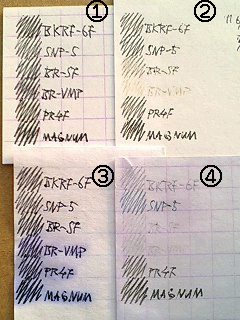 ①
BKRF-6F
SNP-5
BR-5F
BR-VMP
PR4F
MAGNUM
②
BKRF-6F
SNP-5
BR-5F
BR-VMP
PR4F
MAGNUM
③
BKRF-6F
SNP-5
BR-5F
BR-VMP
PR4F
MAGNUM
④
BKRF-6F
SNP-5
BR-5F
BR-VMP
PR4F
MAGNUM